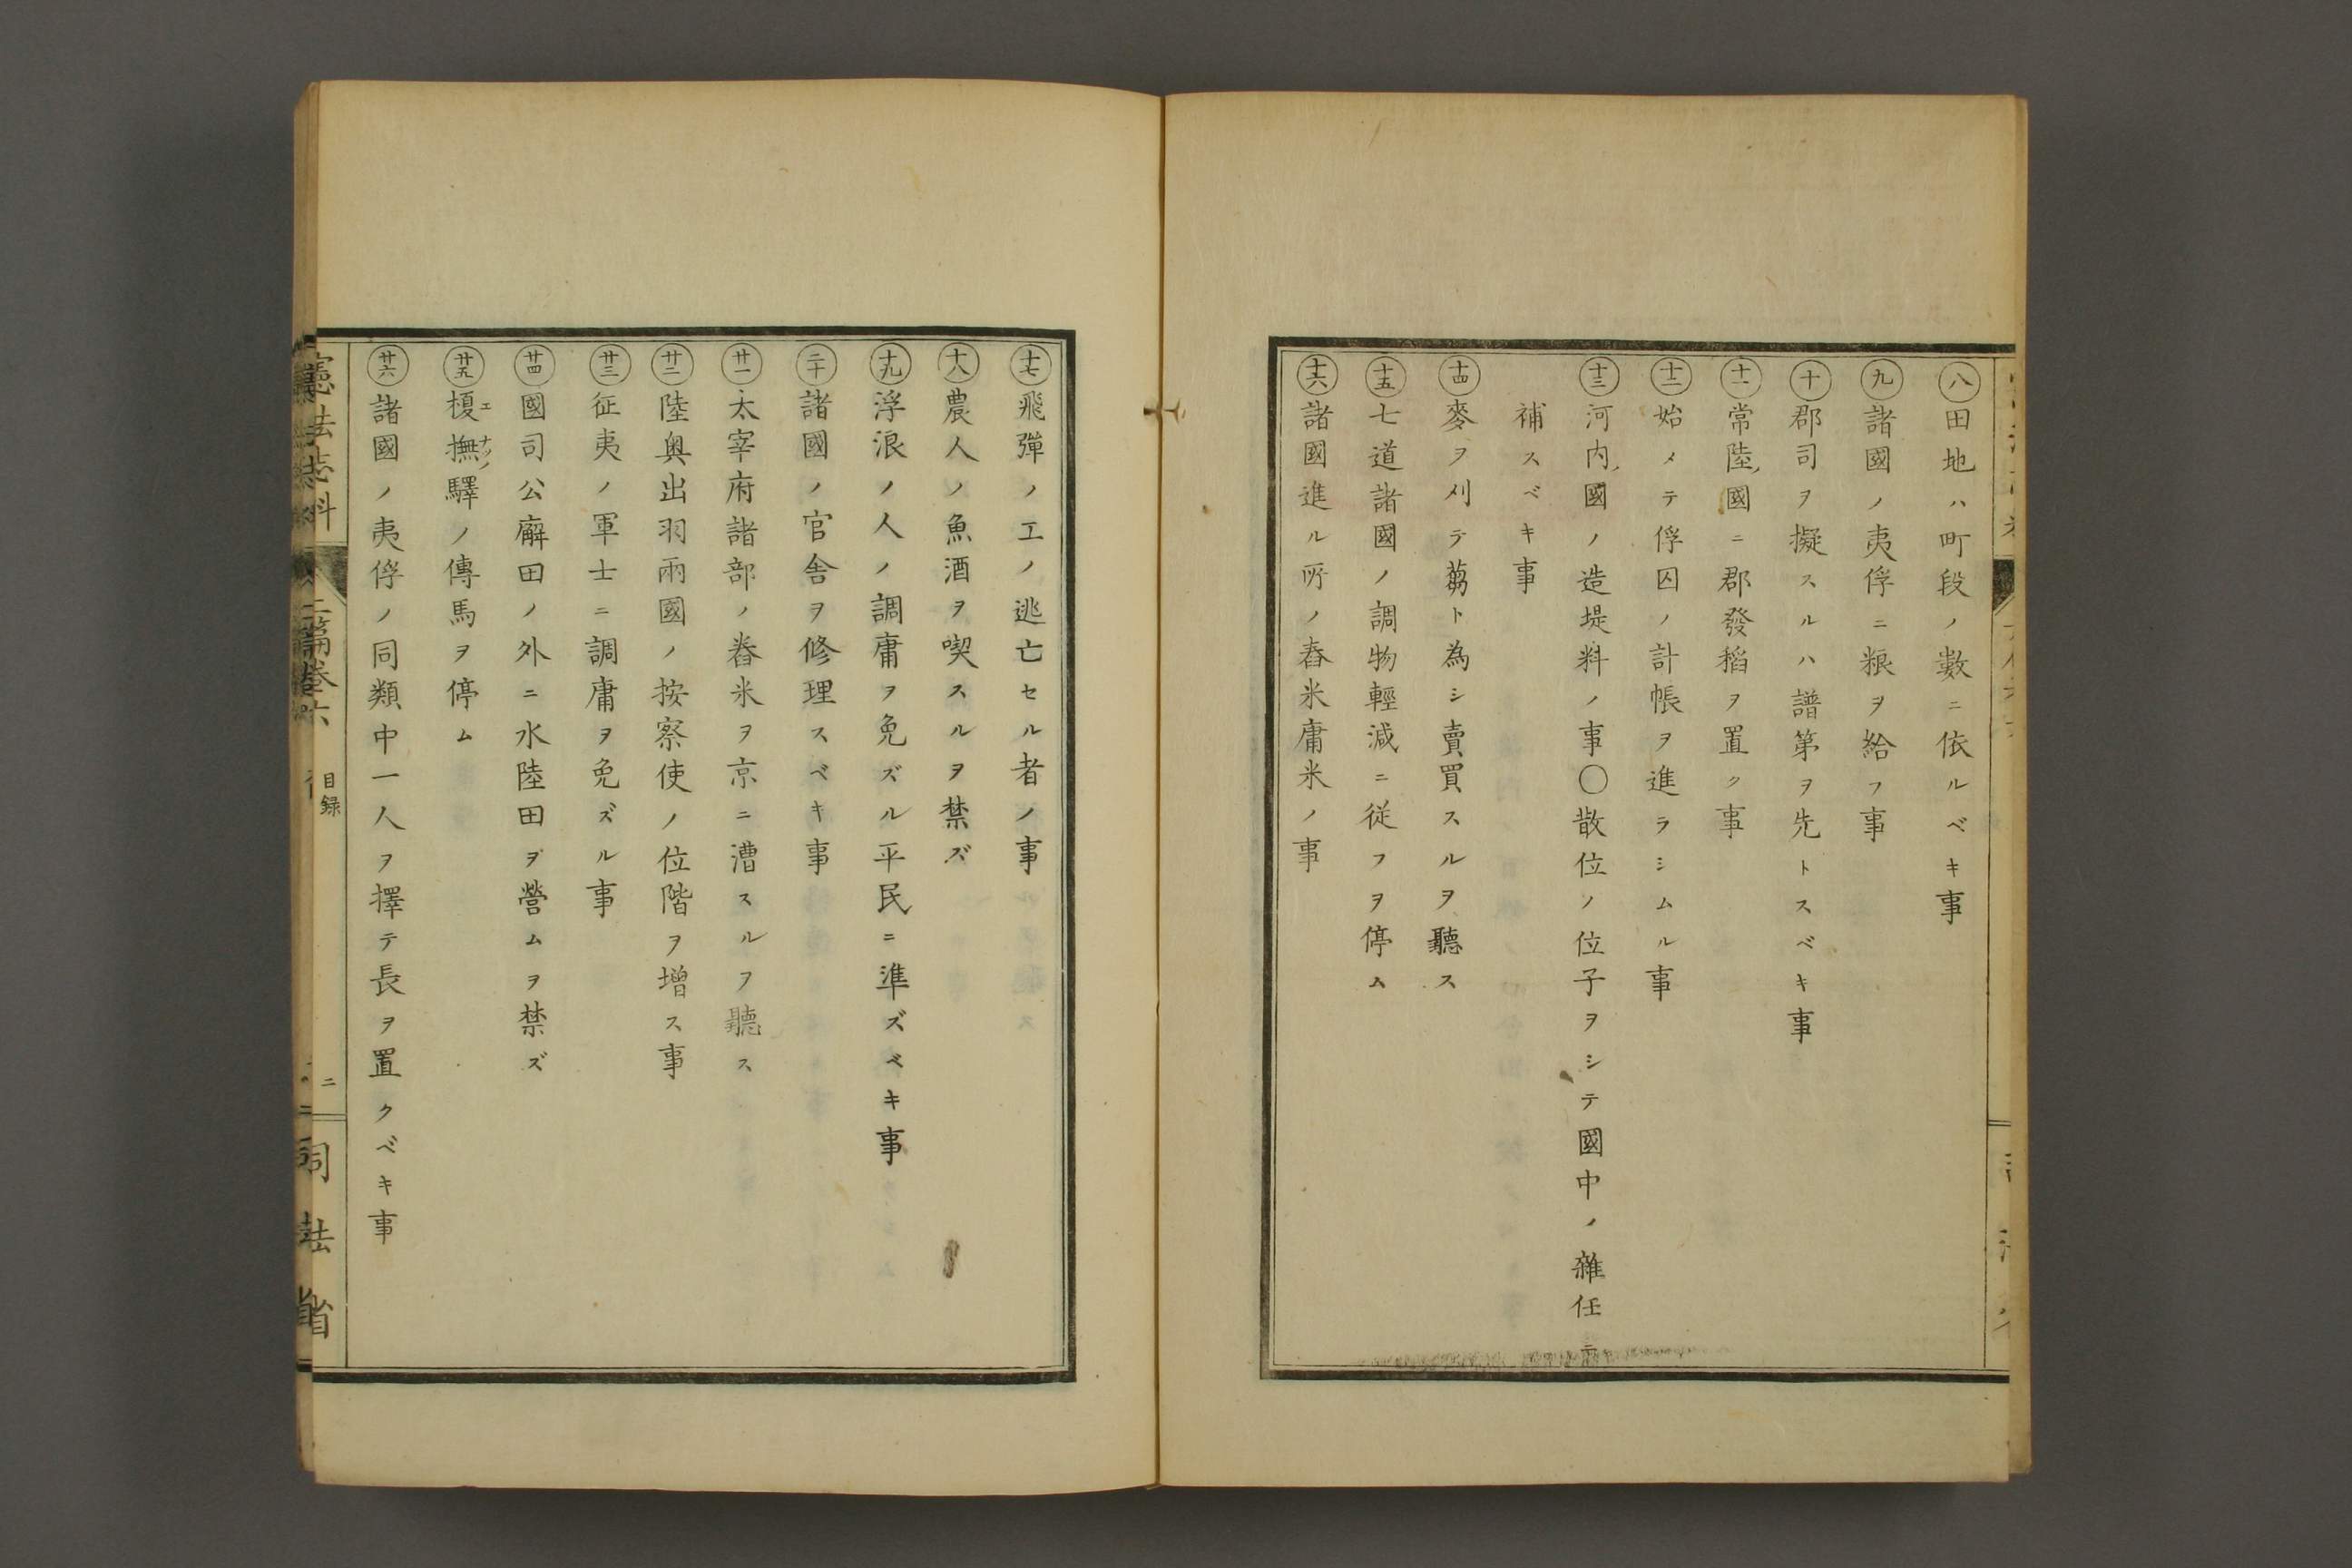 ㊇田地ハ町段ノ數ニ依ルベキ事
㊈諸國ノ夷俘ニ粮ヲ給フ事
㊉郡司ヲ擬スルハ譜第ヲ先トスベキ事
十一常陸ノ國ニ郡發稻ヲ置ク事
十二始メテ俘囚ノ計帳ヲ進ラシムル事
十三河内ノ國ノ造堤料ノ事〇散位ノ位子ヲシテ國中ノ雜任ニ
補スベキ事
十四麥ヲ刈テ蒭ト為シ賣買スルヲ聽ス
十五七道諸國ノ調物輕減ニ従フヲ停ム
十六諸國進ル所ノ舂米庸米ノ事
十七飛彈ノ工ノ逃亡セル者ノ事
十八農人ノ魚酒ヲ喫スルヲ禁ズ
十九浮浪ノ人ノ調庸ヲ免ズル平民ニ準ズベキ事
二十諸國ノ官舎ヲ修理スベキ事
廿一太宰府諸部ノ舂米ヲ京ニ漕スルヲ聽ス
廿二陸奥出羽兩國ノ按察使ノ位階ヲ増ス事
廿三征夷ノ軍士ニ調庸ヲ免ズル事
廿四國司公廨田ノ外ニ水陸田ヲ營ムヲ禁ズ
廿五榎撫驛ノ傳馬ヲ停ム
エナツノ
廿六諸國ノ夷俘ノ同類中一人ヲ擇テ長ヲ置クベキ事
憲法志料 二篇巻六 目録 二 司法省